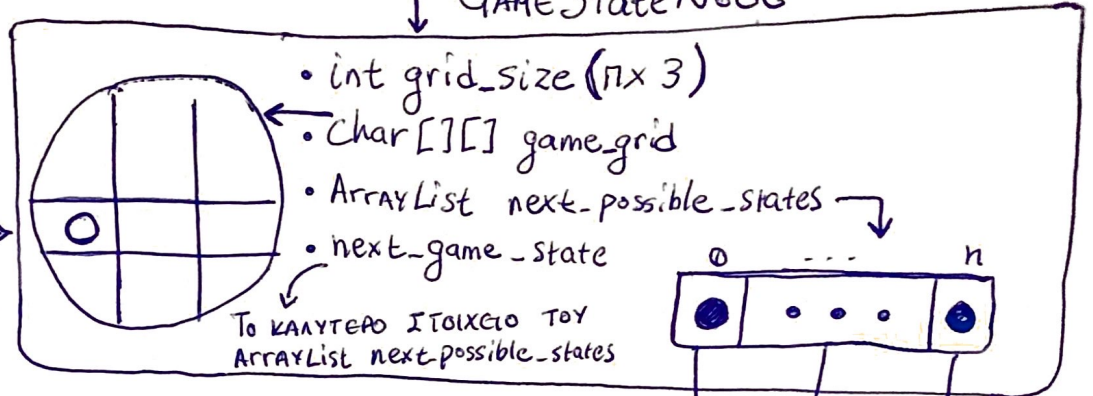 GAMEStateNODE
• int grid_size (πx 3)
• Char[][] game_grid
• ArrayList next_possible_states
• next_game_state
0 ... n
O
Το ΚΑΛΥΤΕΡΟ ΣΤΟΙΧΕΙΟ ΤΟΥ
ArrayList next_possible_states